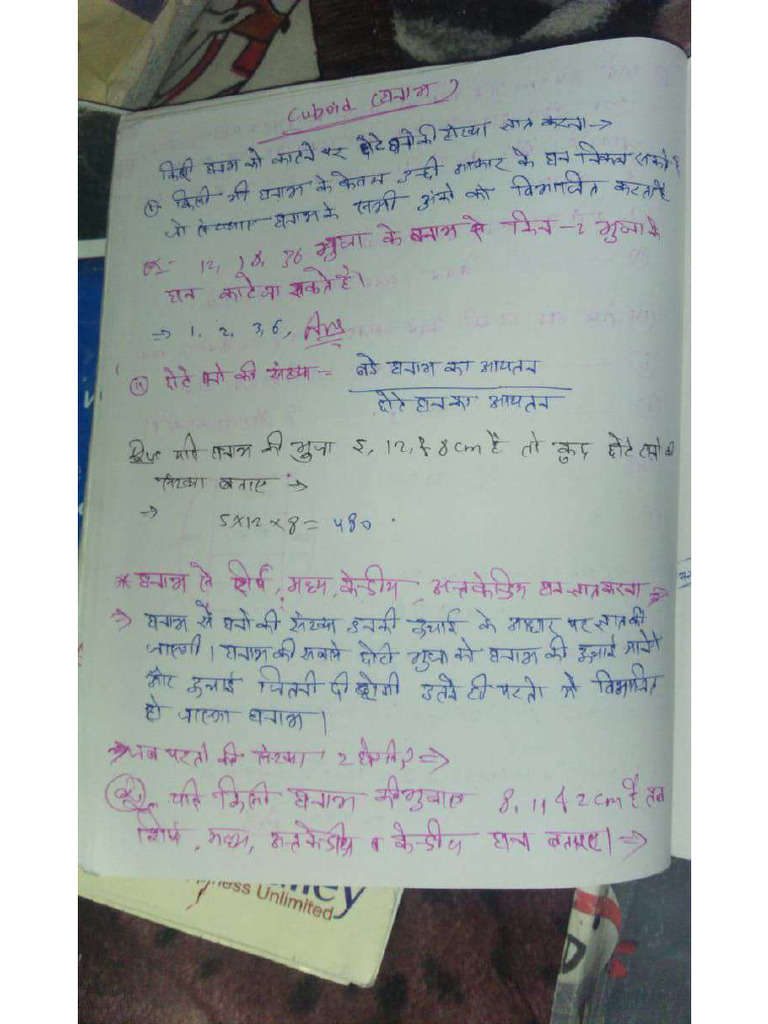 Cuboid (घनाभ)
किसी घनाभ को काटने पर छोटे घनो की संख्या ज्ञात करना →
(i) किसी भी घनाभ के केवल उन्ही आकार के घन निकल सकते है
जो घनाभ के सभी अंको को विभाजित करता है
Ex:- 12, 18, 36 भुजा के घनाभ से किन-2 भुजा के
घन काटे जा सकते है।
⇒ 1, 2, 3, 6, Ans
(ii) छोटे घनो की संख्या = बडे घनाभ का आयतन
छोटे घन का आयतन
यदि घनाभ की भुजा 5, 12, & 8 cm है तो कुल छोटे घनो की
संख्या बताए ⇒
⇒ 5×12×8 = 480
* घनाभ से शीर्ष, मध्य, केन्द्रीय, अन्तकेन्द्रिय घन ज्ञात करना ⇒
⇒ घनाभ से घनो की संख्या उनकी ऊचाई के आधार पर ज्ञात की
जाएगी। घनाभ की सबसे छोटी भुजा को घनाभ की ऊचाई मानेगे
और ऊचाई जितनी दी होगी उतने ही परतो मे विभाजित
हो जाएगा घनाभ।
⇒ जब परतो की संख्या 2 होगी? ⇒
यदि किसी घनाभ की भुजाए 8, 11 & 2 cm है तब
शीर्ष, मध्य, अन्तकेन्द्रीय व केन्द्रीय घन बताए। ⇒
ness Unlimited